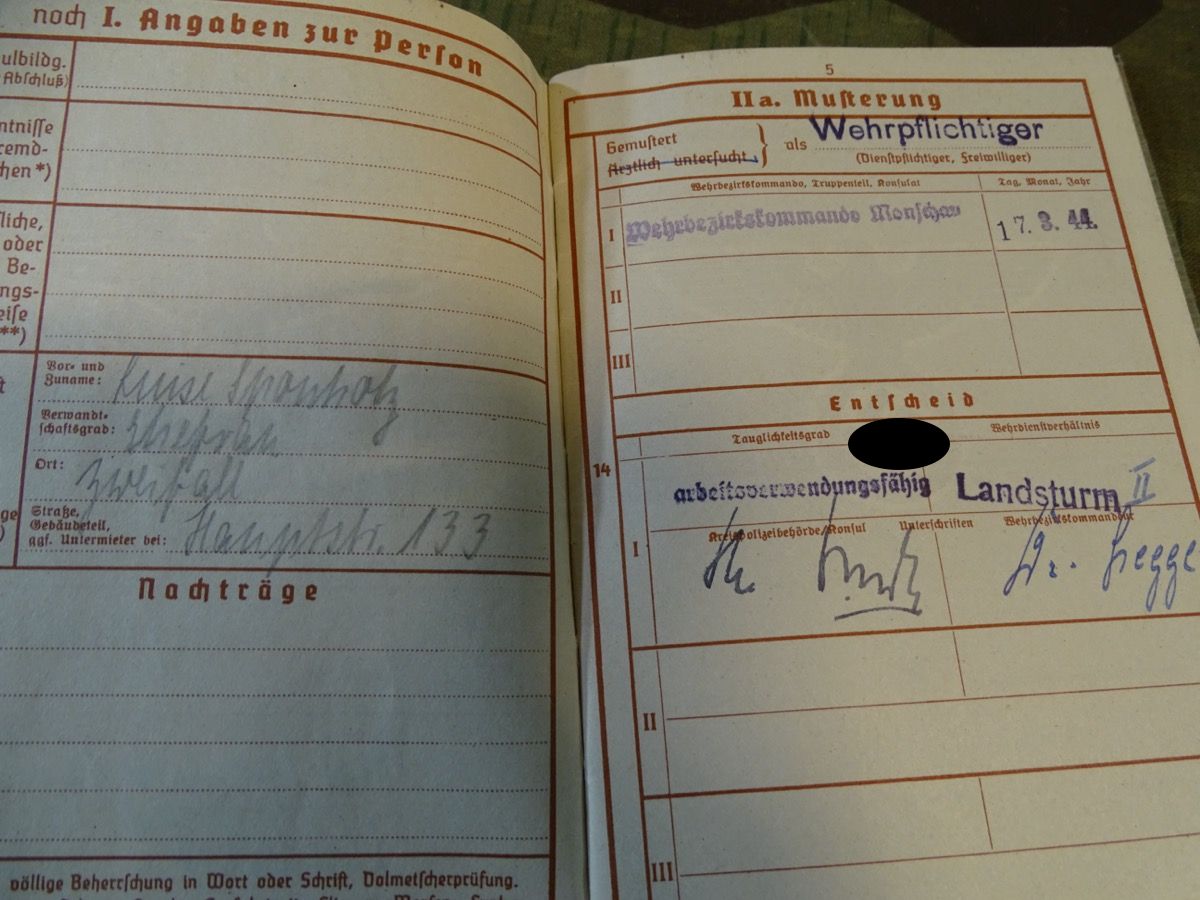 noch I. Angaben zur Person
ulbildg.
Abschluß)
ntnisse
remd-
hen*)
liche,
oder
Be-
ngs-
eise
**)
Vor- und
Zuname: Luise Sponholz
Verwandt-
schaftsgrad: Ehefrau
Ort: Zweifall
Straße,
Gebäudeteil,
ggf. Untermieter bei: Hauptstr. 133
Nachträge
völlige Beherrschung in Wort oder Schrift, Dolmetscherprüfung.
5
IIa. Musterung
Gemustert
Ärztlich untersucht
als Wehrpflichtiger
(Dienstpflichtiger, Freiwilliger)
Wehrbezirkskommando, Truppenteil, Konsulat
Tag, Monat, Jahr
I Wehrbezirkskommando Monschau 17. 3. 44.
II
III
Entscheid
Tauglichkeitsgrad
Wehrdienstverhältnis
14
arbeitsverwendungsfähig Landsturm II
Kreispolizeibehörde/Konsul Unterschriften Wehrbezirkskommandeur
I Dr.
II
III